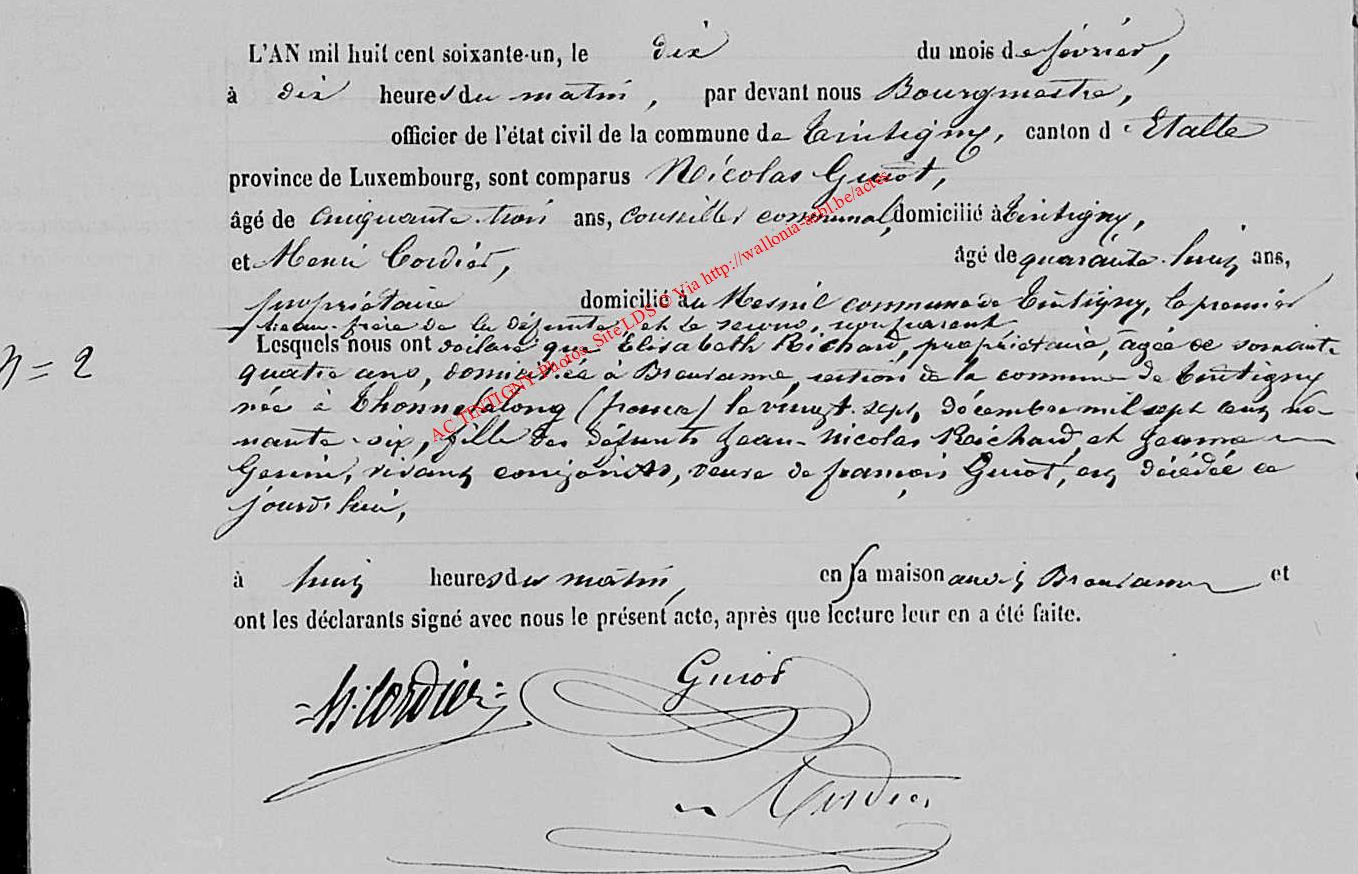 L'AN mil huit cent soixante-un, le dix du mois de février,
à dix heures du matin, par devant nous Bourgmestre,
officier de l'état civil de la commune de Tintigny, canton d'Etalle
province de Luxembourg, sont comparus Nicolas Guiot,
âgé de cinquante-trois ans, conseiller communal, domicilié à Tintigny,
et Henri Cordier, âgé de quarante-huit ans,
propriétaire domicilié au Mesnil commune de Tintigny, le premier
beau-frère de la défunte, et le second, non parent
Lesquels nous ont déclaré que Elisabeth Richard, propriétaire, âgée de soixante
N = 2
quatre ans, domiciliée à Breuvanne, section de la commune de Tintigny
née à Thonnelalong (france) le vingt-sept décembre mil sept cent no-
nante-six, fille des défunts Jean-Nicolas Raichard, et Jeanne
vivant conjoints, veuve de françois Guiot, est décédée ce
jourd'hui,
à huit heures du matin, en sa maison audit Breuvanne et
ont les déclarants signé avec nous le présent acte, après que lecture leur en a été faite.
H. Cordier
Guiot
Cordier
AC TINTIGNY Photos Site LDS © Via http://wallonia-asbl.be/actes